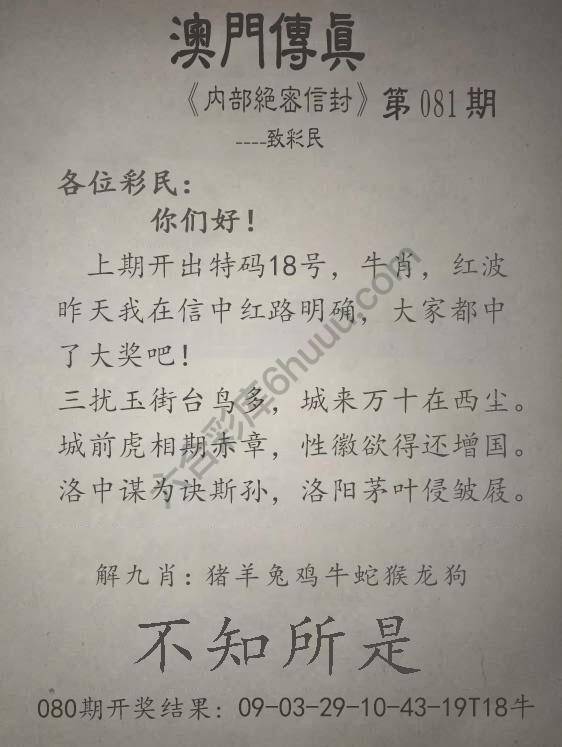 澳門傳眞
《内部絕密信封》第081期
----致彩民
各位彩民：
你们好！
上期开出特码18号，牛肖，红波
昨天我在信中红路明确，大家都中
了大奖吧！
三扰玉街台鸟多，城来万十在西尘。
城前虎相期赤章，性徽欲得还增国。
洛中谋为诀斯孙，洛阳茅叶侵皱屐。
六合彩库6huuu.com
解九肖：猪羊兔鸡牛蛇猴龙狗
不知所是
080期开奖结果：09-03-29-10-43-19T18牛